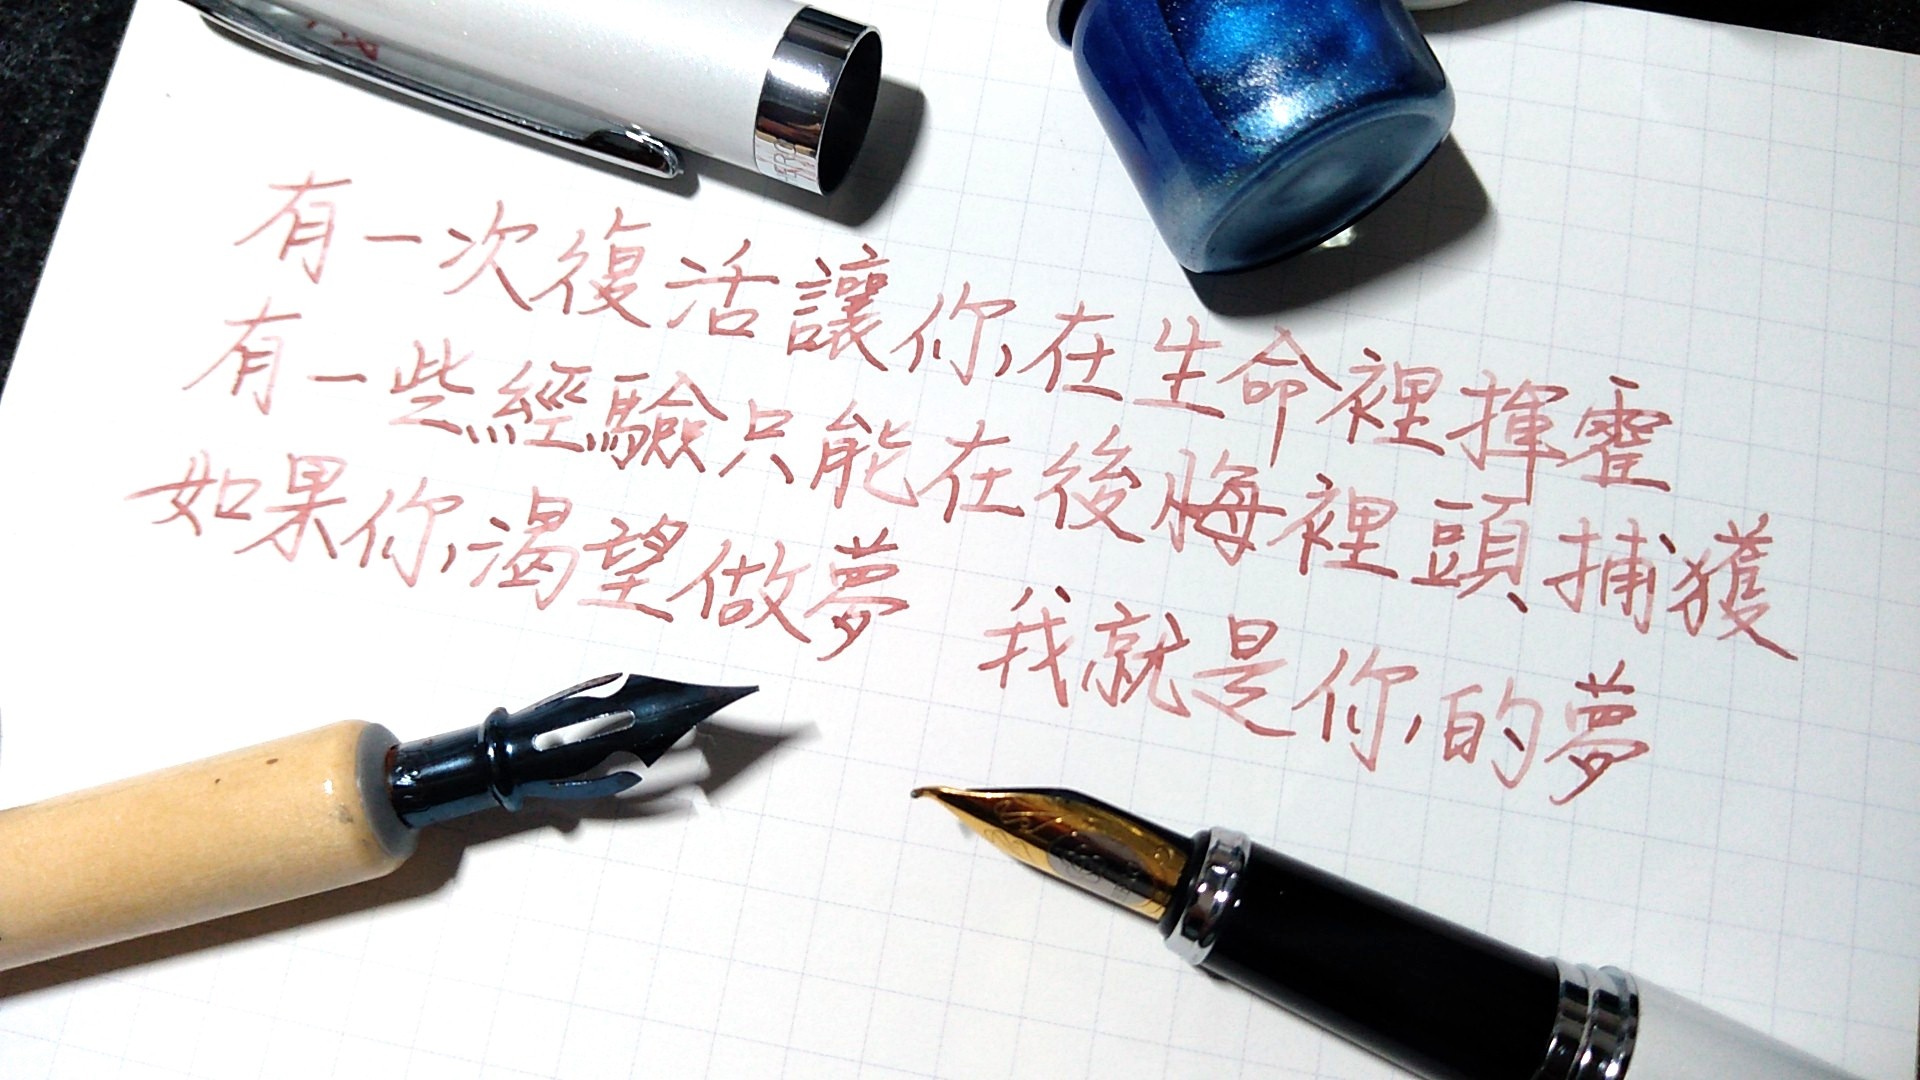 有一次復活讓你在生命裡揮霍
有一些經驗只能在後悔裡頭捕獲
如果你渴望做夢 我就是你的夢